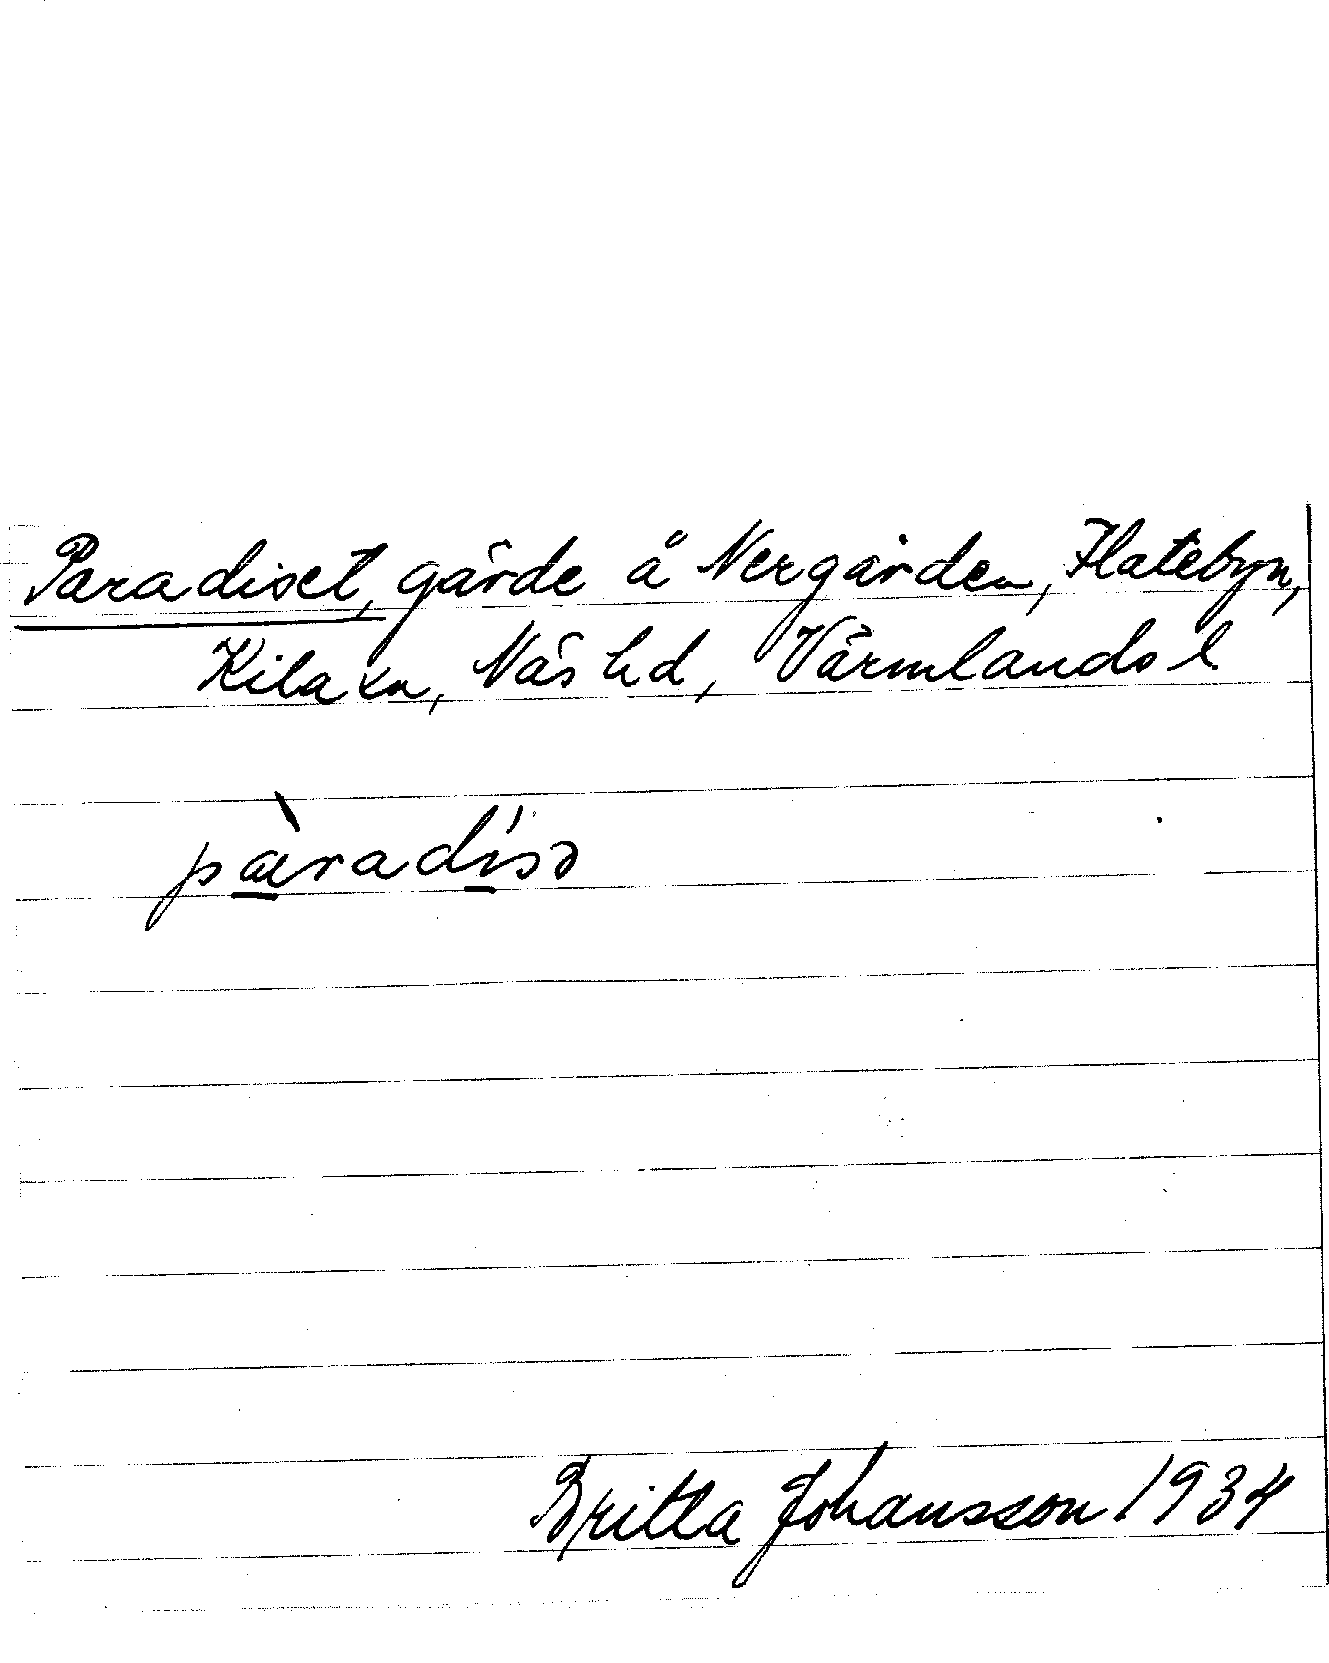 Paradiset, gärde å Nergården, Flatebyn,
Kila sn, Näs hd, Värmlands l
pàradísə
Britta Johansson 1934